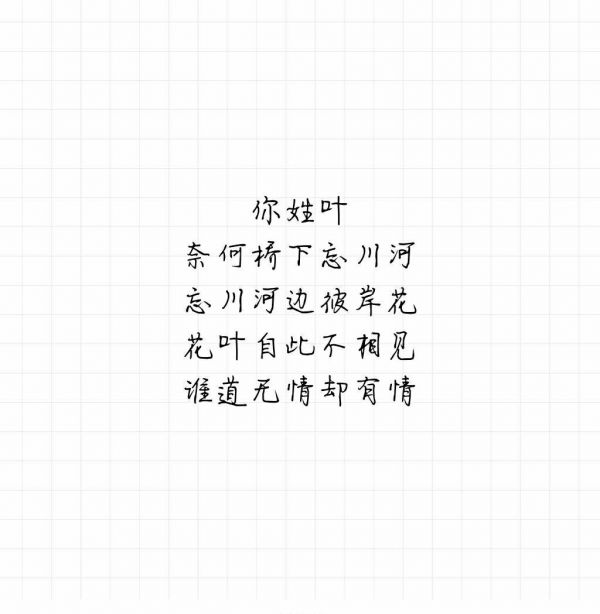 你姓叶
奈何桥下忘川河
忘川河边彼岸花
花叶自此不相见
谁道无情却有情